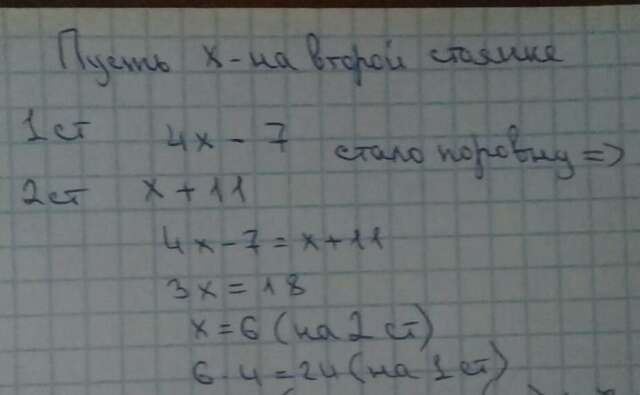 Пусть x - на второй стоянке
1ст 4x - 7 стало поровну =>
2ст x + 11
4x - 7 = x + 11
3x = 18
x = 6 (на 2 ст)
6 · 4 = 24 (на 1 ст)